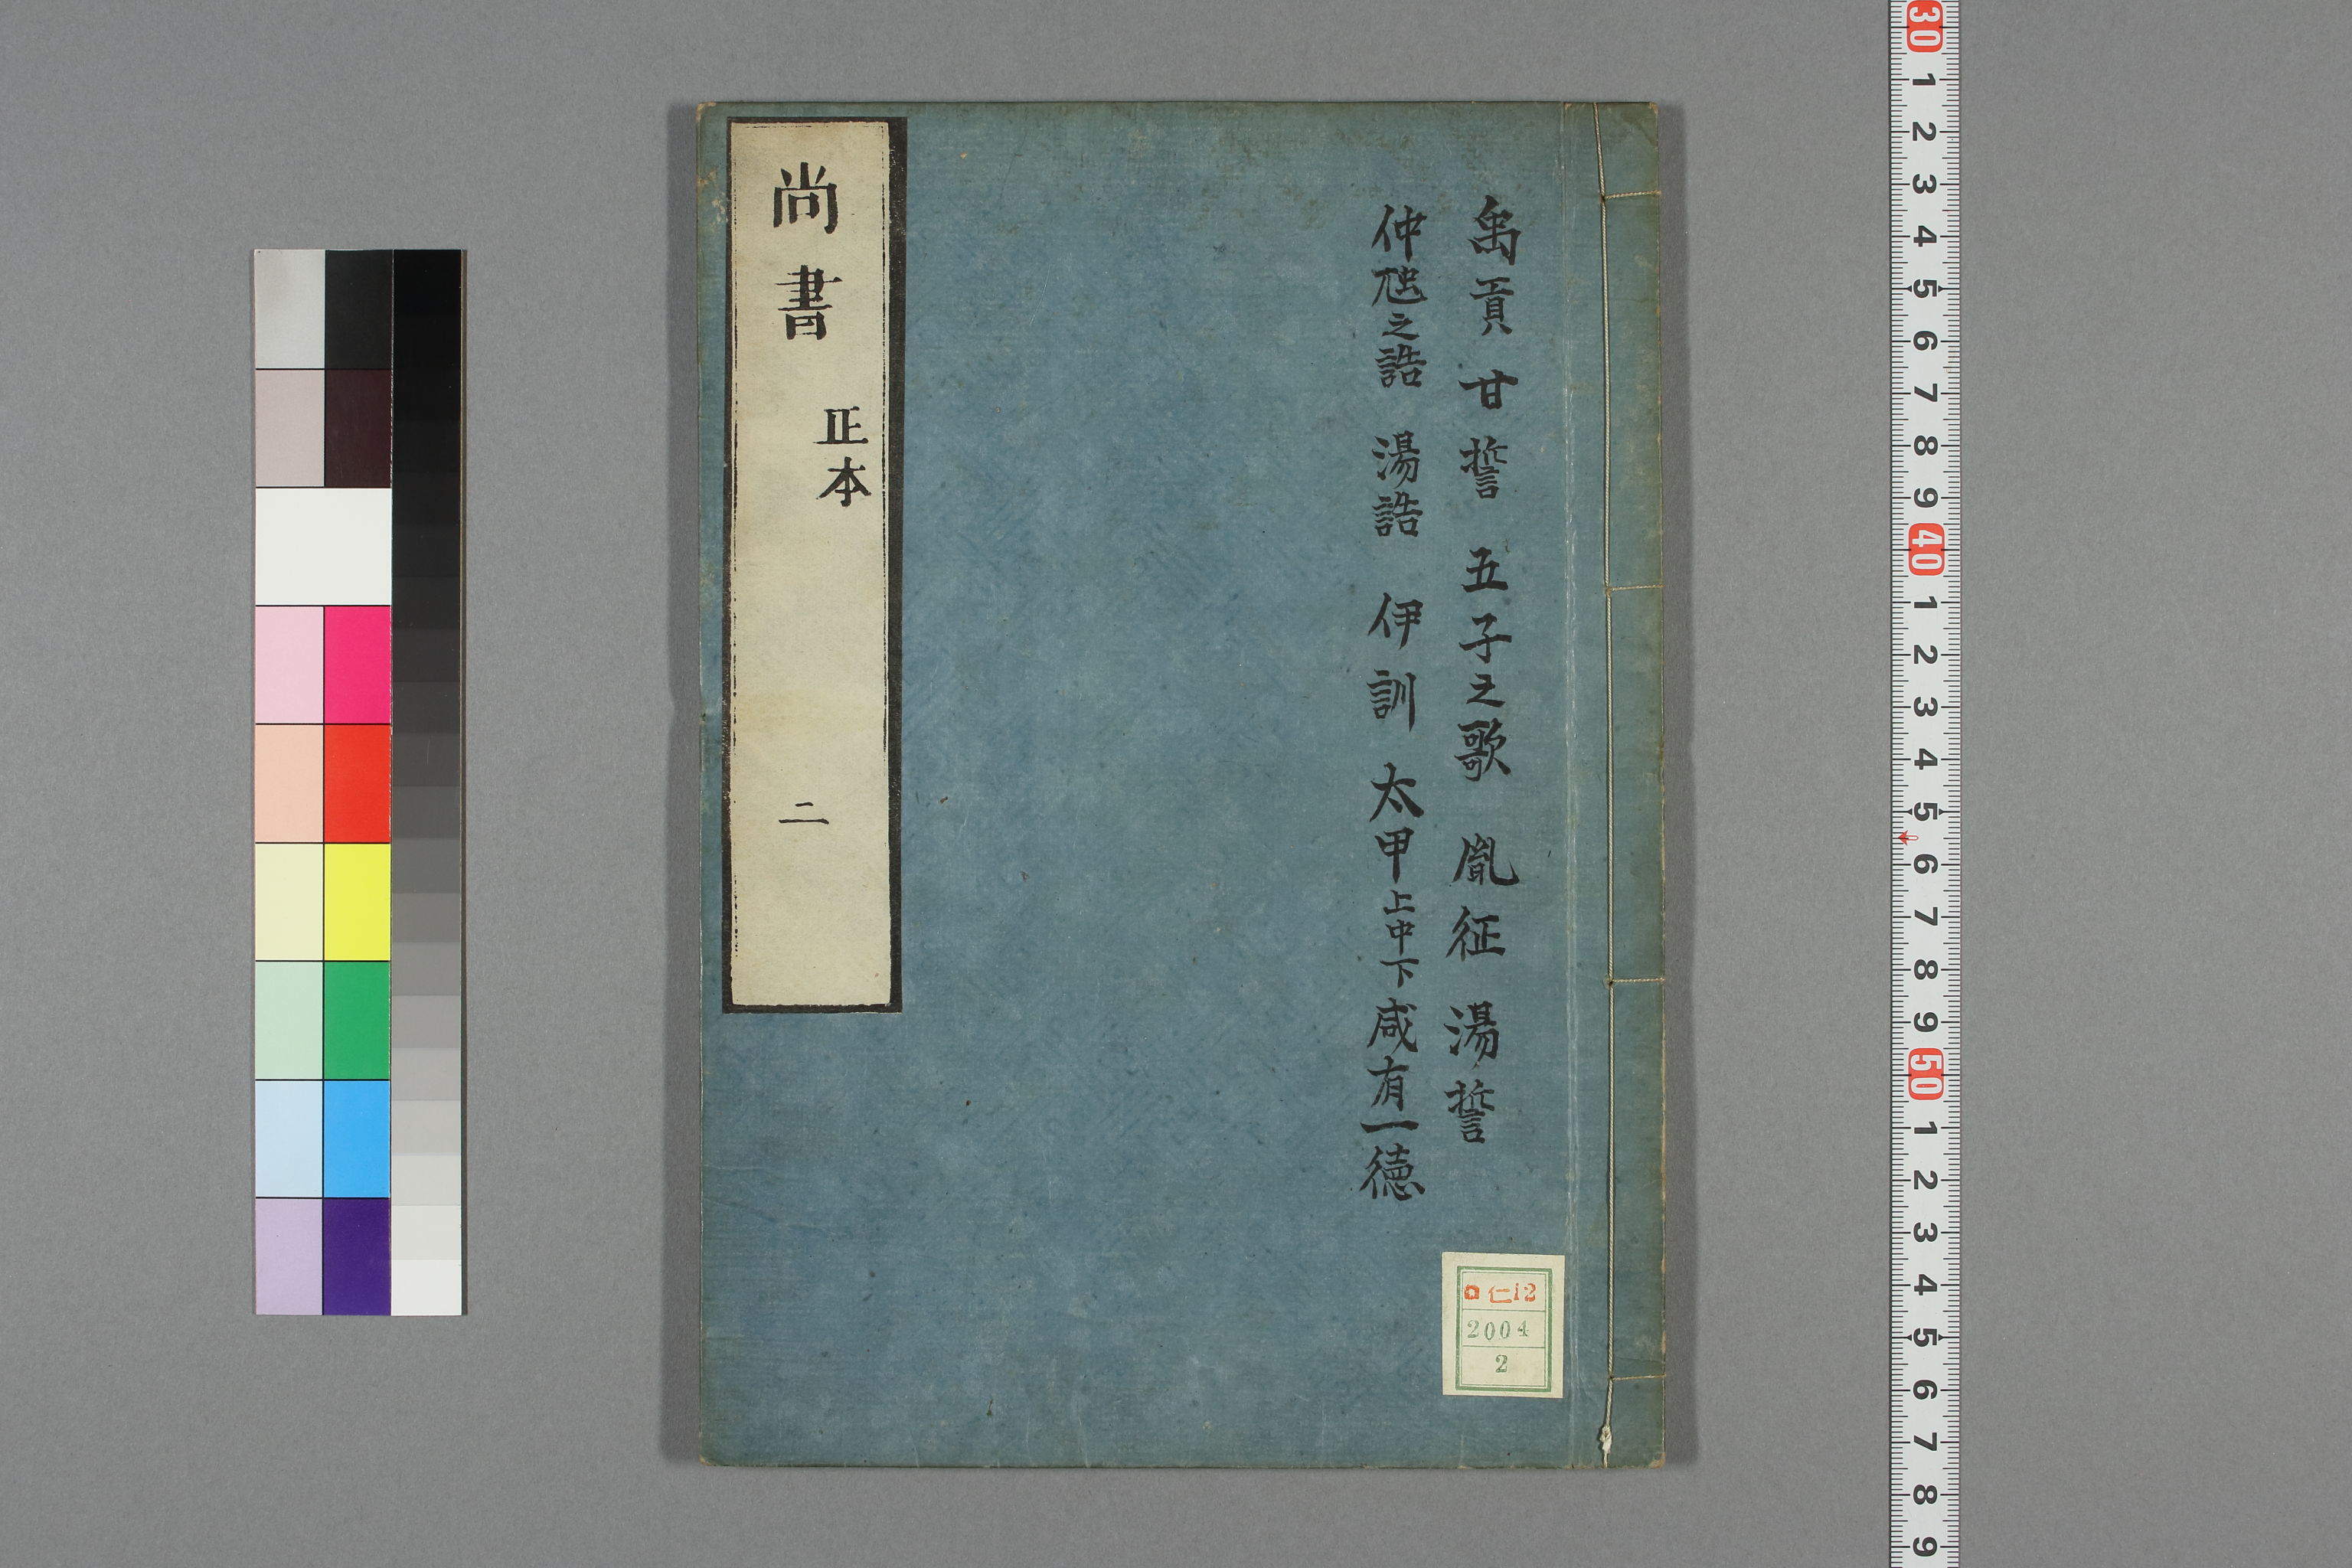 禹貢 甘誓 五子之歌 胤征 湯誓
仲虺之誥 湯誥 伊訓 太甲上中下 咸有一徳
尚書 正本 二
ロ 仁12
2004
2
30 1 2 3 4 5 6 7 8 9 40 1 2 3 4 5 6 7 8 9 50 1 2 3 4 5 6 7 8 9